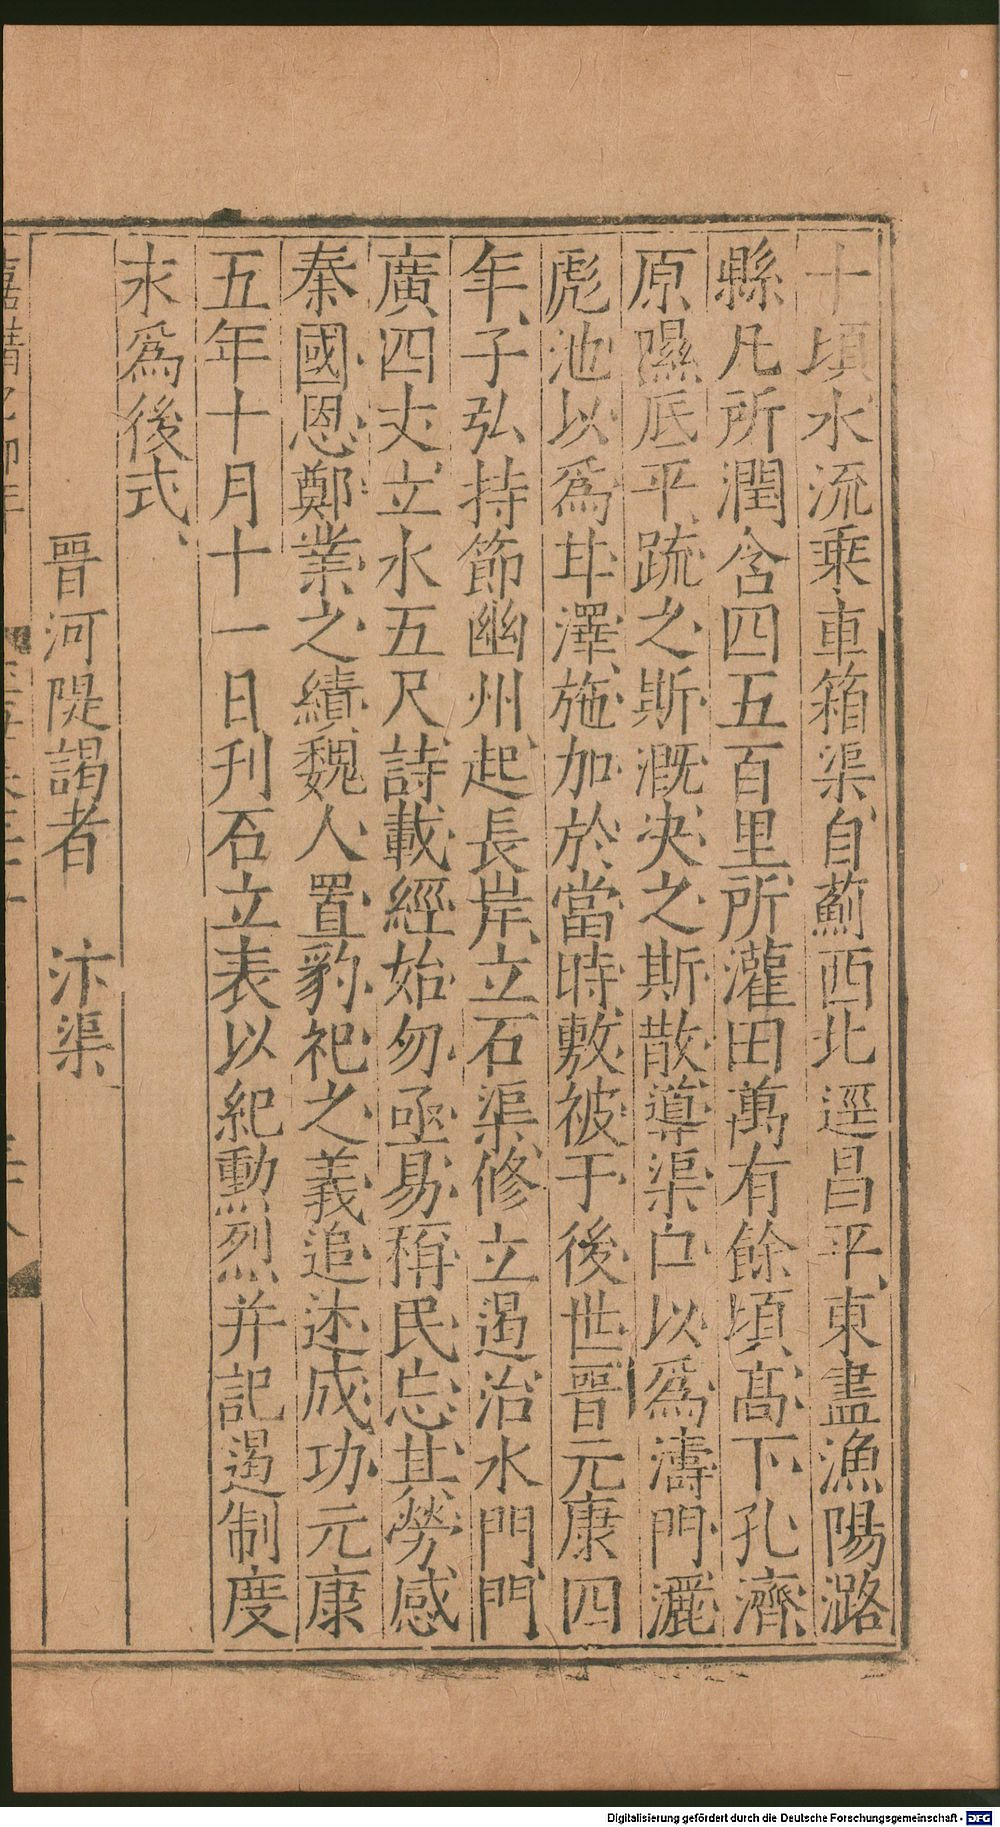 十頃水流乗車箱渠自薊西北逕昌平東盡漁陽潞
縣凡所潤含四五百里所灌田萬有餘頃髙下孔濟
原隰底平䟽之斯溉决之斯散導渠口以爲濤門灑
滮池以爲甘澤施加於當時敷被于後世晉元康四
年子弘持節幽州起長岸立石渠修立遏治水門門
廣四丈立水五尺詩載經始勿亟易稱民忘其勞感
秦國思鄭業之績魏人置豹祀之義追述成功元康
五年十月十一日刋石立表以紀勳烈并記遏制度
求爲後式
晉河隄謁者　汴渠
Digitalisierung gefördert durch die Deutsche Forschungsgemeinschaft - DFG